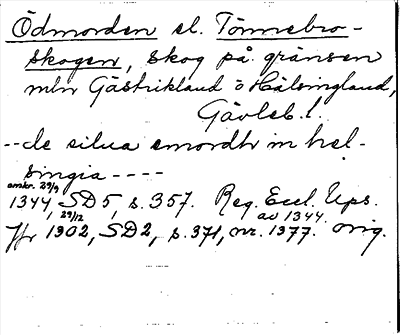 Ödmorden el. Tönnebro-
skogen, skog på gränsen
mln Gästrikland o Hälsingland,
Gävleb. l.
--de silua emordh in hel-
singia ----
omkr. 29/9
1344, SD 5, s. 357. Reg. Eccl. Ups.
av 1344.
29/12
Jfr 1302, SD 2, s. 371, nr. 1377. orig.